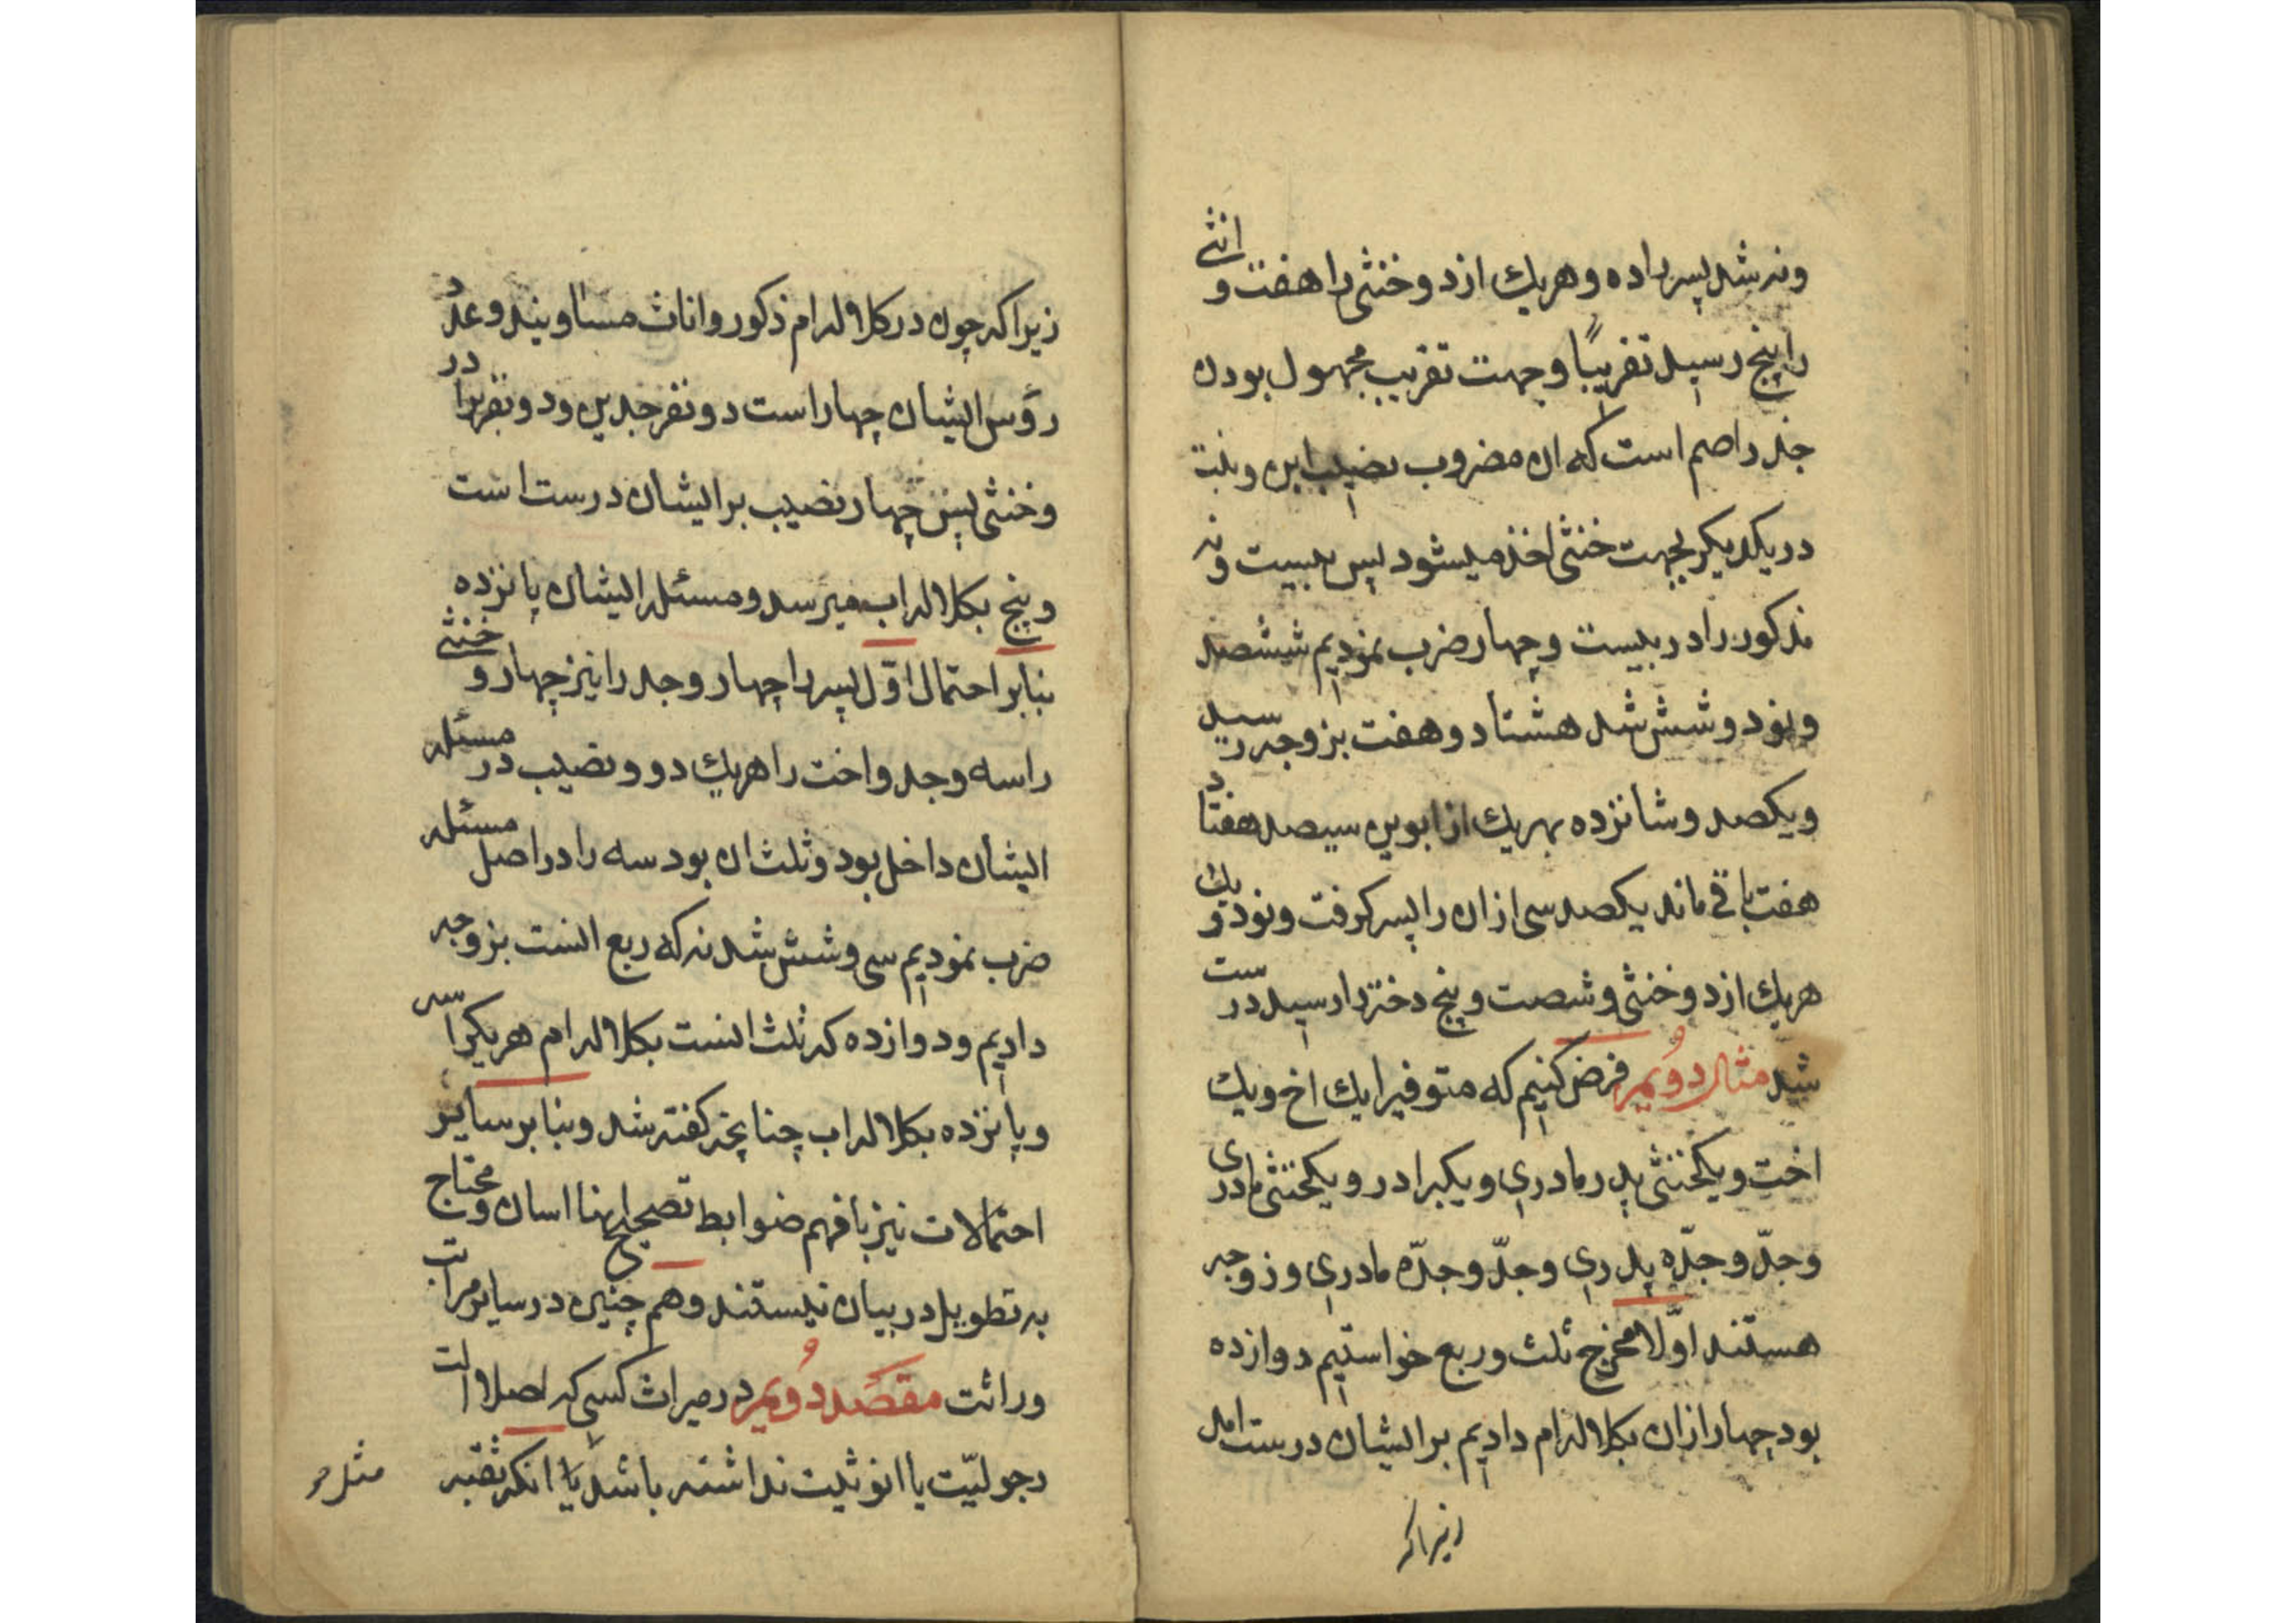 ونه شد پسر را ده و هریك از دو خنثی را هفت و انثی
را پنج رسید تقریبًا و جهت تقریب مجهول بودن
جذر اصم است که ان مضروب نصیب ابن و بنت
در یکدیگر بجهت خنثی اخذ میشود پس بیست و نه
مذکور را در بیست و چهار ضرب نمودیم ششصد
و نود و شش شد هشتاد و هفت بزوجه رسید
و یکصد و شانزده بهریك از ابوین سیصد هفتاد
هفت باقی ماند یکصد سی ازان را پسر کرفت و نود و یك
هریك از دو خنثی و شصت و پنج دختر را رسید درست
شد مثال دوُیم فرض کنیم که متوفیرا یك اخ و یك
اخت و یکخنثی پدر مادری و یکبرادر و یکخنثی مادری
و جدّ و جدّه پدری و جدّ و جدّه مادری و زوجه
هستند اوّلا مخرج ثلث و ربع خواستیم دوازده
بود چهار ازان بکلاله ام دادیم بر ایشان درست امد
زیرا که
زیرا که چون در کلاله ام ذکور و اناث مساویند و عدد
رؤس ایشان چهار است دو نفر جدین و دو نفر برادر
و خنثی پس چهار نصیب بر ایشان درست است
و پنج بکلاله اب میرسد و مسئله ایشان پانزده
بنابر احتمال اوّل پسر را چهار و جد را نیز چهار و خنثی
را سه و جد و اخت را هریك دو و نصیب در مسئله
ایشان داخل بود و ثلث ان بود سه را در اصل مسئله
ضرب نمودیم سی و شش شد نه که ربع انست بزوجه
دادیم و دوازده که ثلث انست بکلاله ام هریکرا سه
و پانزده بکلاله اب چنانچه کفته شد و بنابر سایر
احتمالات نیز با فهم ضوابط تصحیح اینها اسان و محتاج
به تطویل در بیان نیستند و هم چنین در سایر مراتب
وراثت مقصد دوُیم در میراث کسی که اصلا الت
رجولیّت یا انوثیت نداشته باشد یا انکه ثقبه
مثل